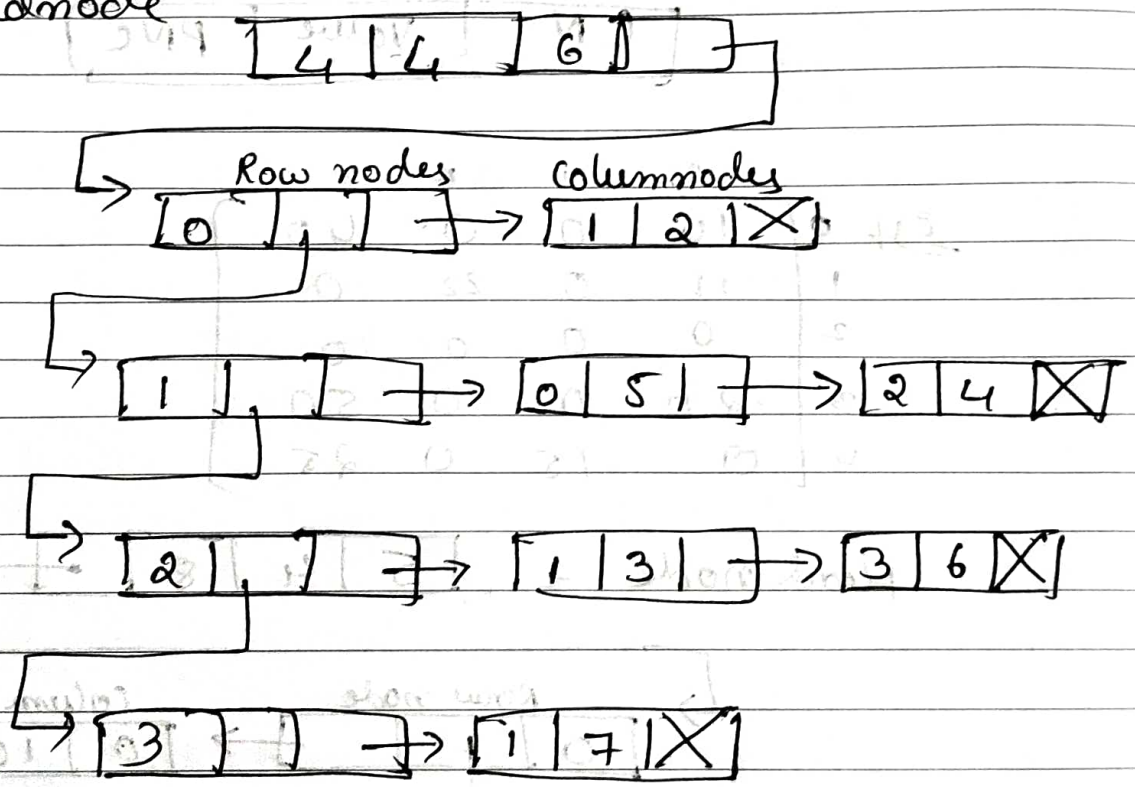 4 4 6
Row nodes columnnodes
0 1 2 X
1 0 5 2 4 X
2 1 3 3 6 X
3 1 7 X